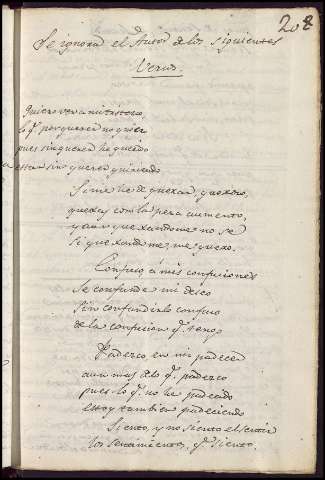 208
Se ignora el Autor de los siguientes
Versos
Quiero ver a mi
lo q. por querer no quier
pues sin querer he querido
estar sin querer queriendo
Si me he de quexar, quexoso,
quexas con la pena aumento,
y aun quexandome no se
si quexandome, me quexo.
Confuso á mis confusiones
Se confunde mi deseo
Sin confundirlo confuso
de la confusion q. tengo
Padezco en mi padecer
aun mas de lo q. padezco
pues lo q. no he padecido
estoy tambien padeciendo
Siento, y no siento el sentir
los sentimientos q. siento.